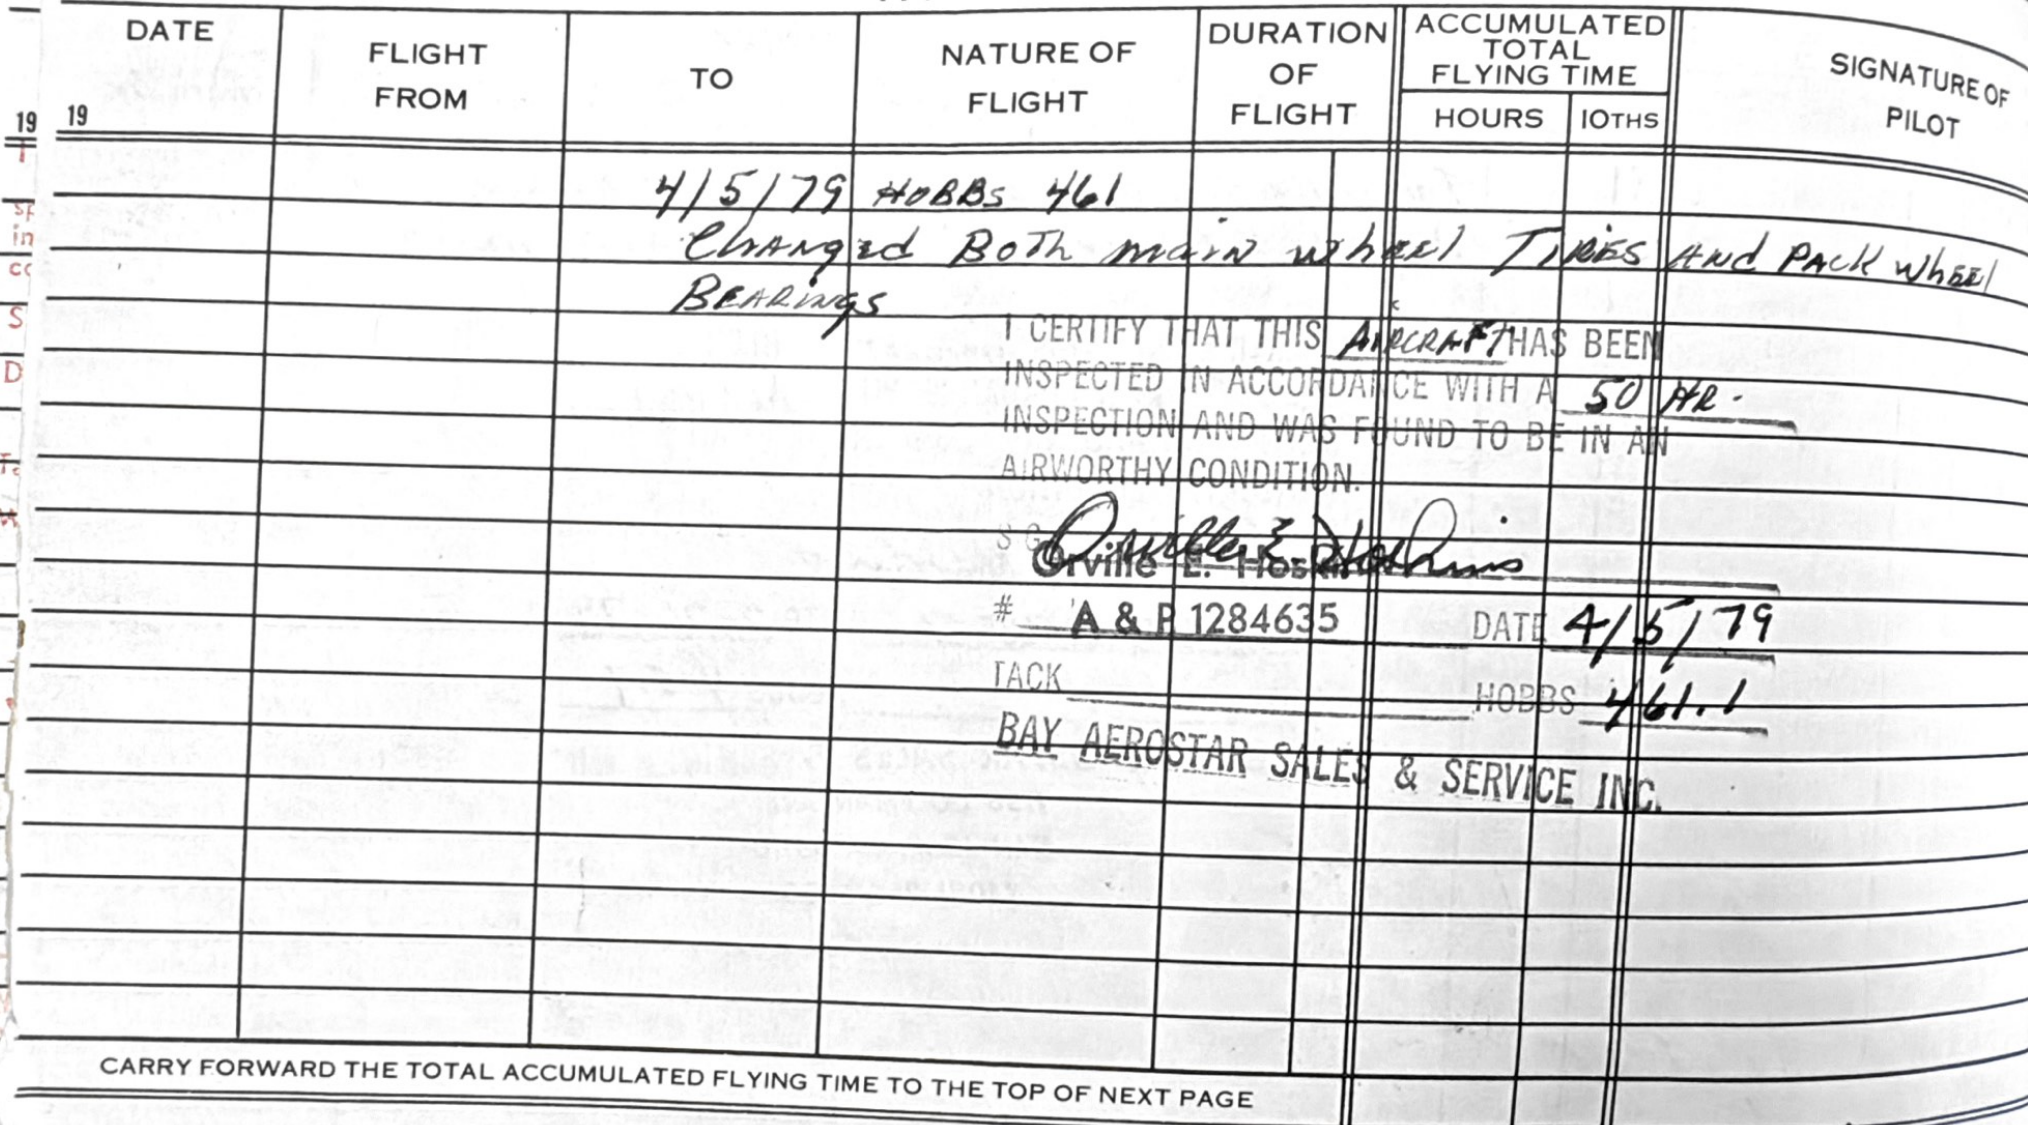 DATE
FLIGHT FROM
TO
NATURE OF FLIGHT
DURATION OF FLIGHT
ACCUMULATED TOTAL FLYING TIME
HOURS
10THS
SIGNATURE OF PILOT
19 19
4/5/79 HOBBS 461
Changed Both main wheel Tires And Pack wheel
Bearings
I CERTIFY THAT THIS Aircraft HAS BEEN
INSPECTED IN ACCORDANCE WITH A 50 HR.
INSPECTION AND WAS FOUND TO BE IN AN
AIRWORTHY CONDITION.
Orville E. Hoskins
Orville E. Hoskin
# A & P 1284635 DATE 4/5/79
TACK HOBBS 461.1
BAY AEROSTAR SALES & SERVICE INC.
CARRY FORWARD THE TOTAL ACCUMULATED FLYING TIME TO THE TOP OF NEXT PAGE